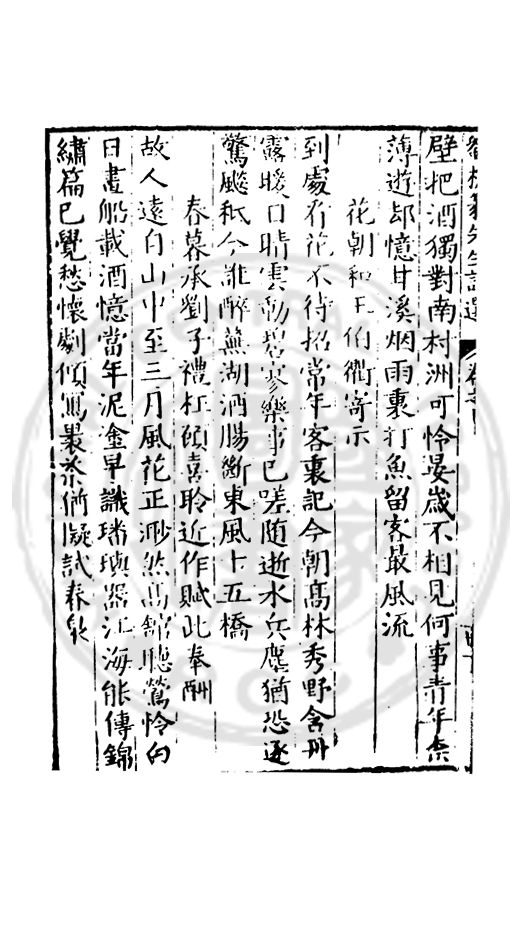 壁把酒獨對南村洲可怜晏歲不相見何事青年柰
薄遊却憶甘溪烟雨裏打魚留客最風流
花朝和王伯衢寄示
到處看花不待招常年客裏記今朝髙林秀野含
露暖日晴雲動碧寥樂事已嗟随逝水兵塵猶恐逐
驚飈秪今誰醉蕪湖酒腸斷東風十五橋
春暮承劉子禮枉顧喜聆近作賦此奉酬
故人遠自山中至三月風花正渺然髙舘聽鶯怜
日畫船載酒憶當年泥金早識璠璵器江海能傳錦
繡篇已覺愁懷劇傾寫最 試春